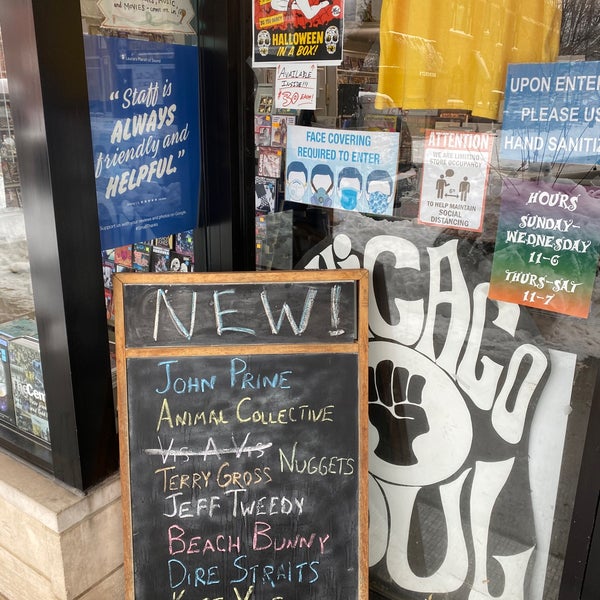 MUSIC
MOVIES
Laura's Planet of Sound
"Staff is
ALWAYS
friendly and
HELPFUL."
Support us with your reviews and photos on Google.
HALLOWEEN
IN A BOX!
AVAILABLE
INSIDE!!!
$30 EACH!
FACE COVERING
REQUIRED TO ENTER
ATTENTION
WE ARE LIMITING
STORE OCCUPANCY
TO HELP MAINTAIN
SOCIAL
DISTANCING
UPON ENTE
PLEASE US
HAND SANITIZ
HOURS
SUNDAY-
WEDNESDAY
11-6
THURS-SAT
11-7
CHICAGO
SOUL
NEW!
JOHN PRINE
ANIMAL COLLECTIVE
VIS A VIS
TERRY GROSS NUGGETS
JEFF TWEEDY
BEACH BUNNY
DIRE STRAITS